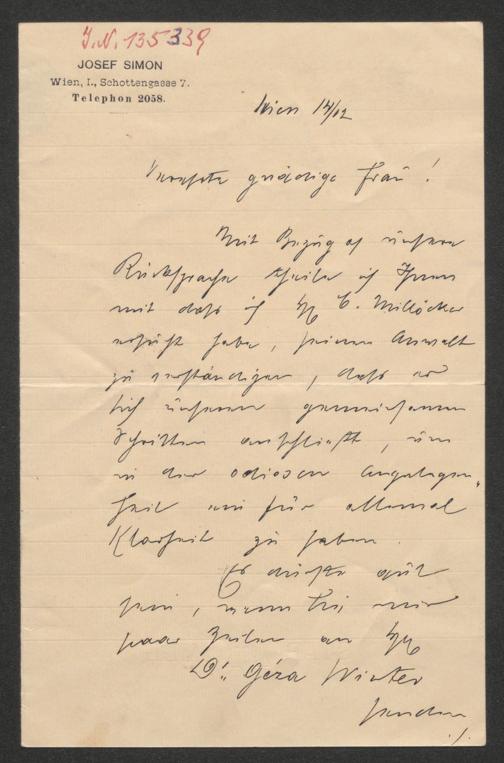 I.N. 135339
JOSEF SIMON
Wien, I., Schottengasse 7.
Telephon 2058.
Wien 14/02
Verehrte gnädige Frau!
Mit Bezug auf unsere
Rücksprache theile ich Ihnen
mit dass ich H C. Millöcker
ersucht habe, seinen Anwalt
zu verständigen, dass er
sich unseren gemeinsamen
Schritten anschließt, um
in der odiosen Angelegen-
heit ein für allemal
Klarheit zu haben.
Es dürfte gut
sein, wenn Sie ein
paar Zeilen an H
Dr. Géza Winter
senden
./.